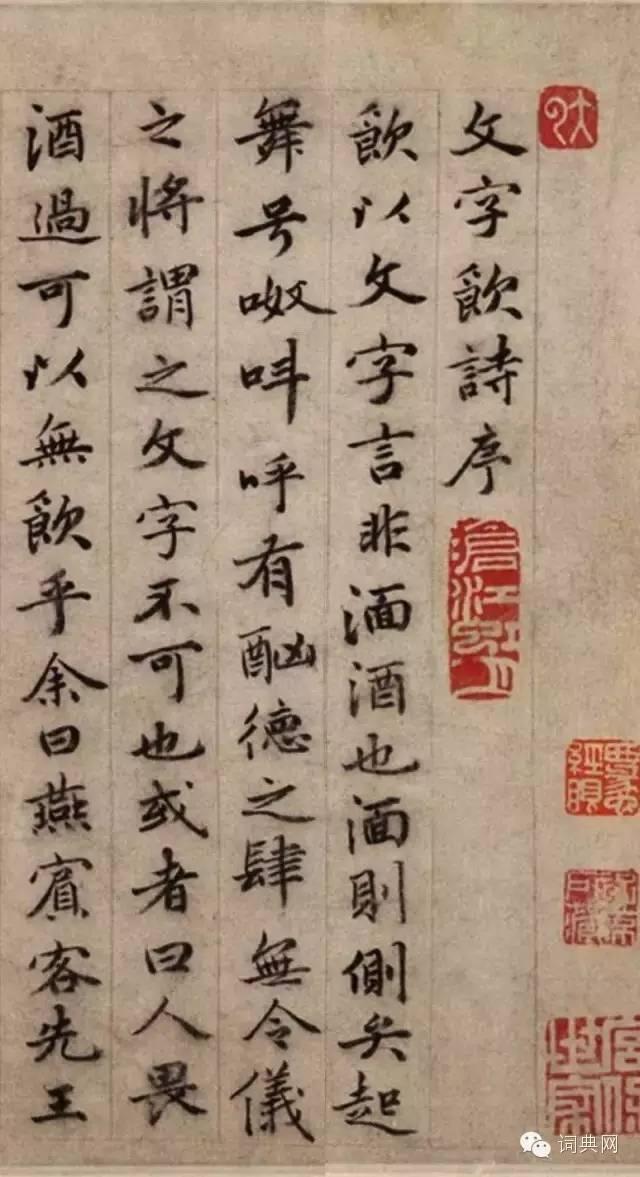 文字飲詩序
飲以文字言非湎酒也湎則側矣起
舞号呶叫呼有酗德之肆無令儀
之將謂之文字不可也或者曰人畏
酒過可以無飲乎余曰燕賓客先王
词典网